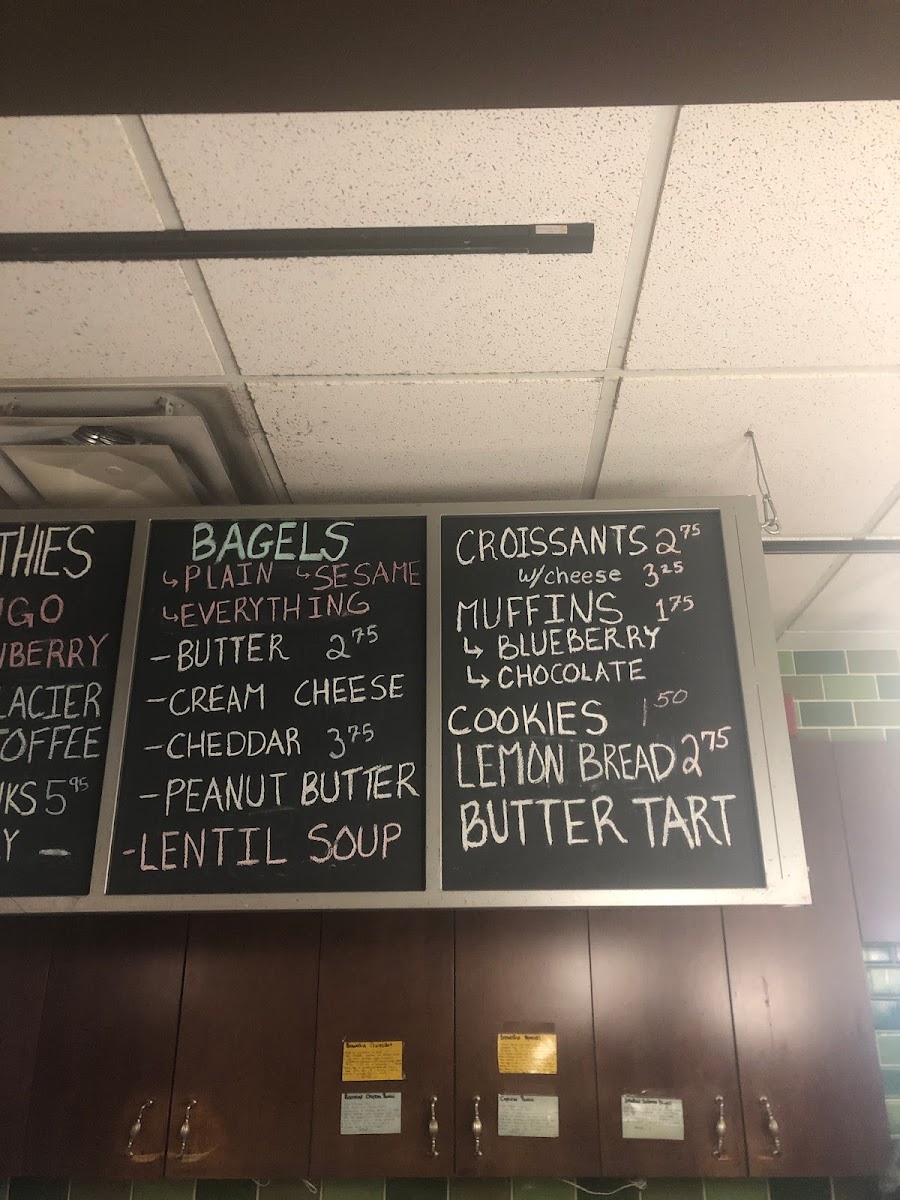 THIES
UGO
BERRY
LACIER
OFFEE
KS 5 95
Y —
BAGELS
↳ PLAIN ↳ SESAME
↳ EVERYTHING
- BUTTER 2 75
- CREAM CHEESE
- CHEDDAR 3 75
- PEANUT BUTTER
- LENTIL SOUP
CROISSANTS 2 75
w/cheese 3 25
MUFFINS 1 75
↳ BLUEBERRY
↳ CHOCOLATE
COOKIES 1 50
LEMON BREAD 2 75
BUTTER TART